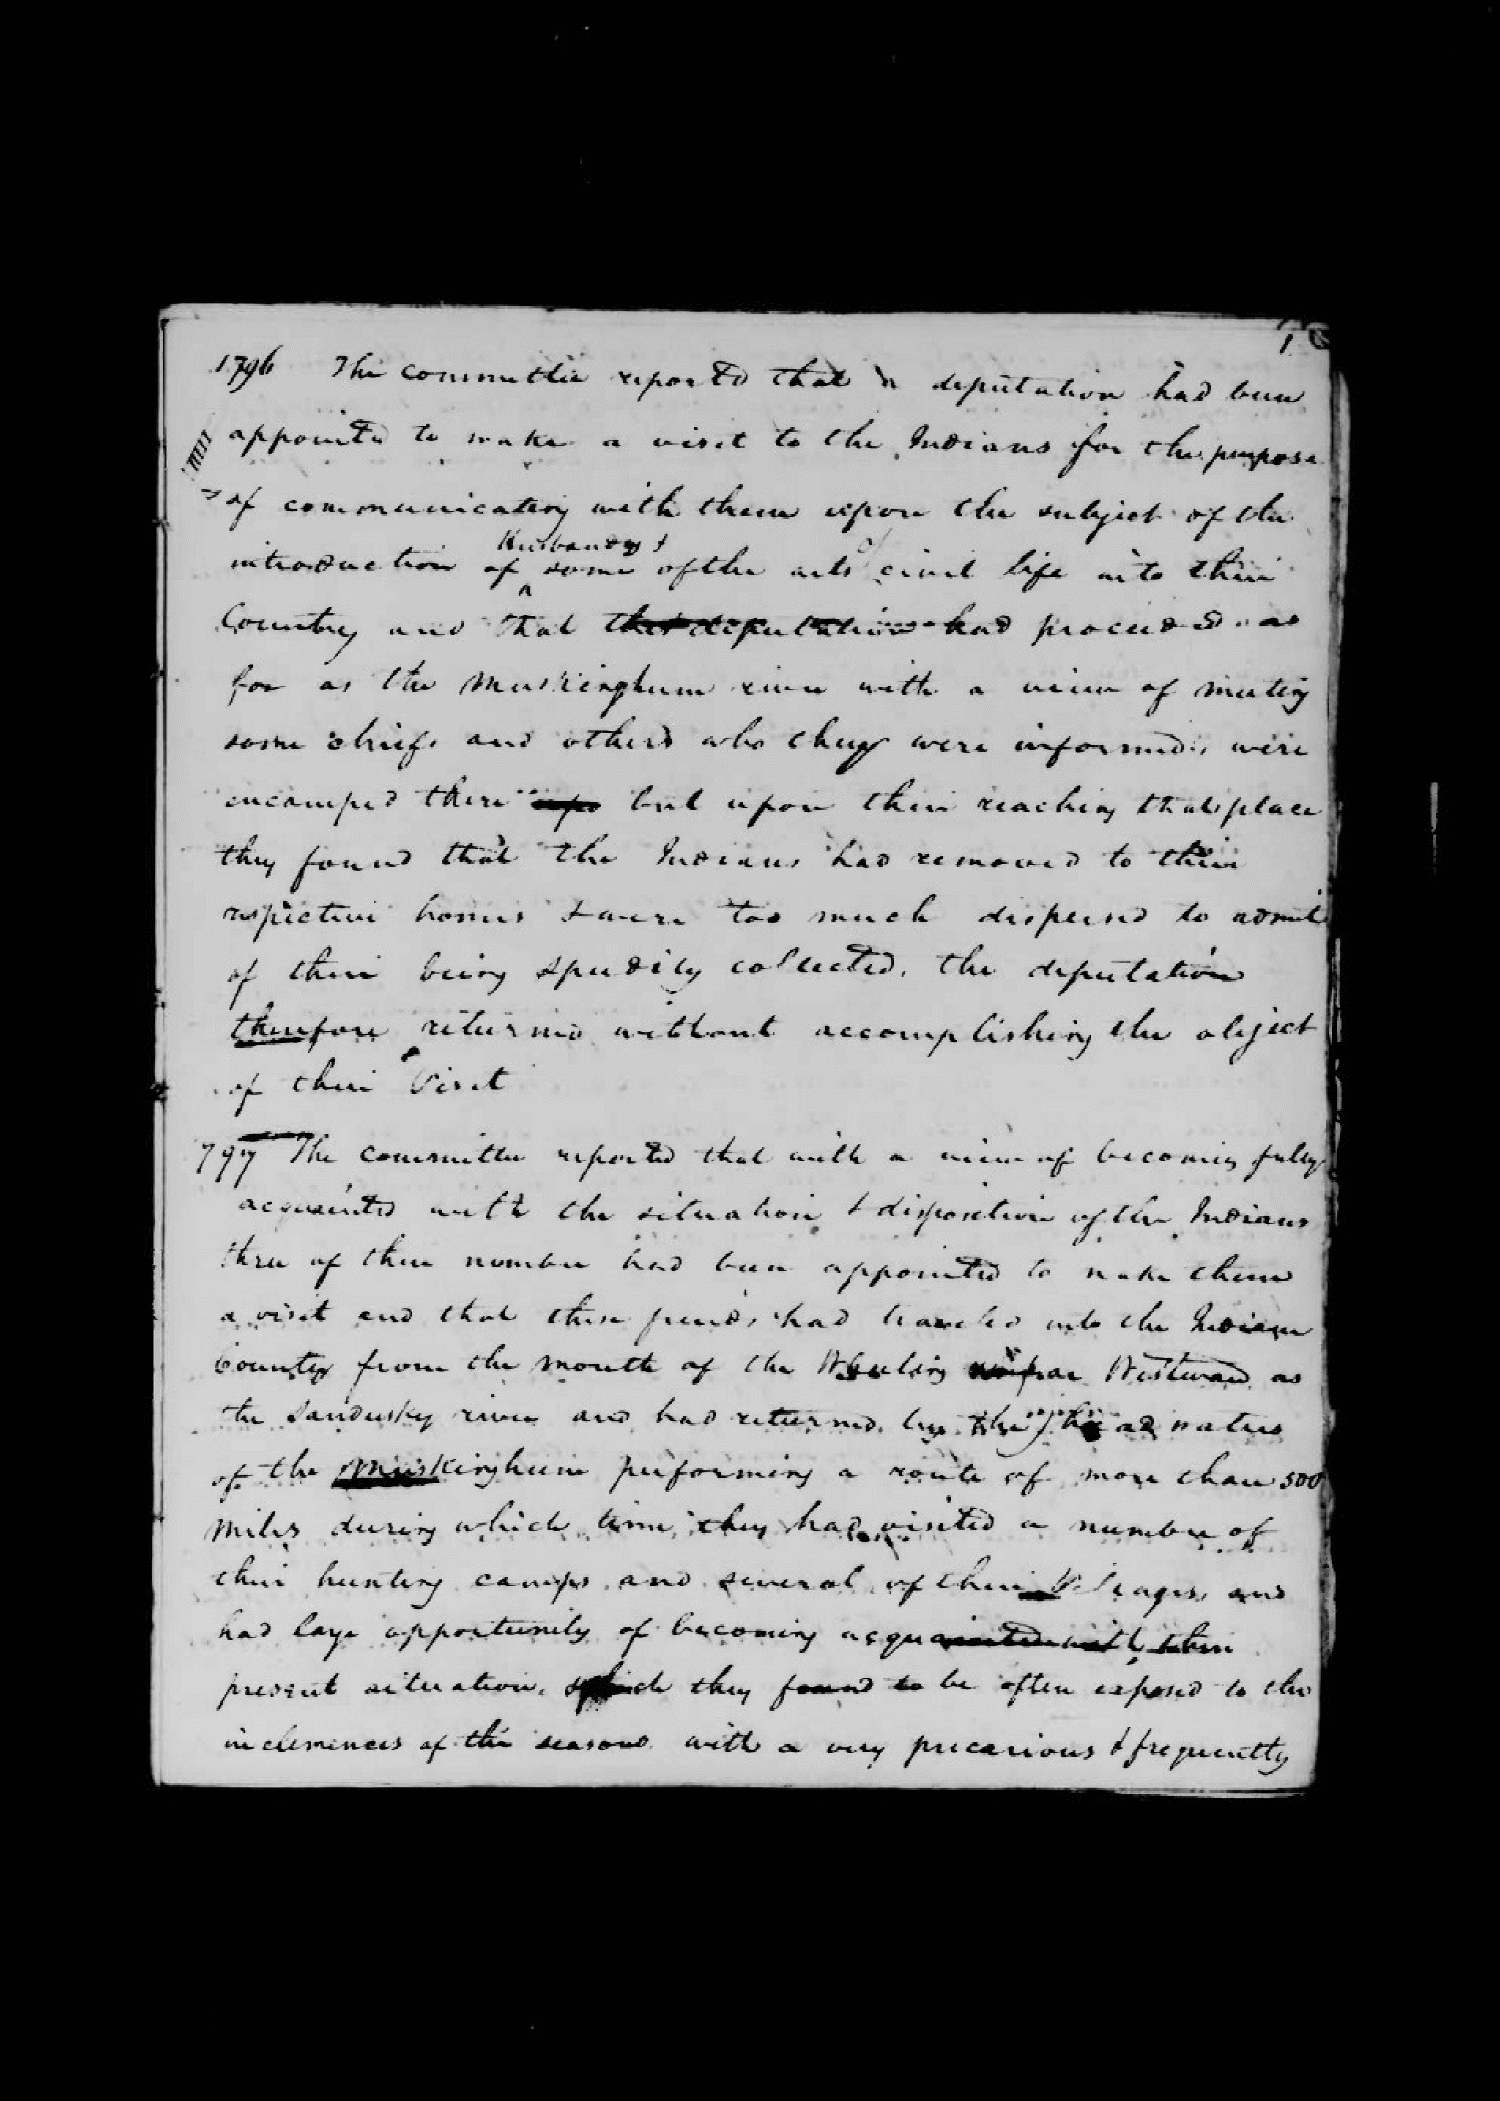 1
1796 The committee reported that a deputation had been
appointed to make a visit to the Indians for the purpose
of communicating with them upon the subject of the
Husbandry &
introduction of some of the arts of civil life into their
Country and that this deputation had proceeded as
far as the Muskinghum river with a view of meeting
some chiefs and others who they were informed were
encamped there upo but upon their reaching that place
they found that the Indians had removed to their
respective homes & were too much dispersed to admit
of their being speedily collected. the deputation
therefore returned without accomplishing the object
of their Visit
797 The committee reported that with a view of becoming fully
acquainted with the situation & disposition of the Indians
three of their number had been appointed to make them
a visit and that these friends had traveled into the Indian
Country from the mouth of the Wheeling far Westward as
the Sandusky river and had returned by the head waters
of the Muskinghum performing a route of more than 500
Miles during which time they had visited a number of
their hunting camps and several of their Villages, and
had large opportunity of becoming acquainted with their
present situation, which they found to be often exposed to the
inclemences of the seasons with a very precarious & frequently